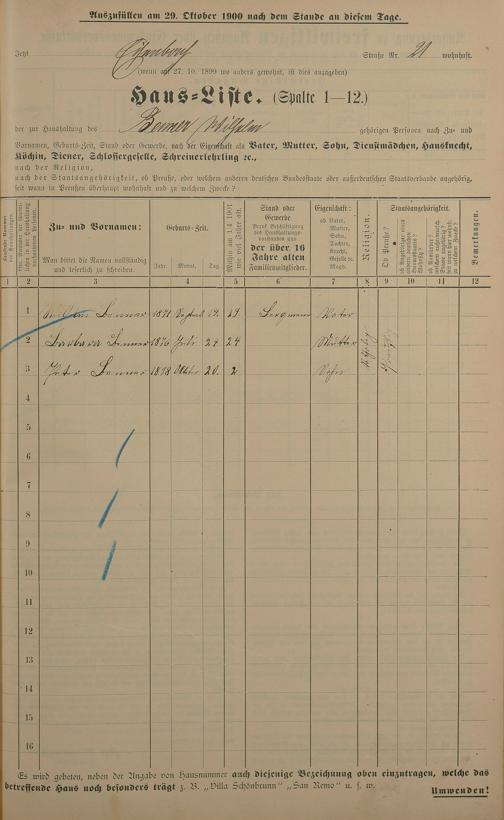 Auszufüllen am 29. Oktober 1900 nach dem Stande an diesem Tage.
Jetzt Straße Nr. 21 wohnhaft.
(wenn am 27. 10. 1899 wo anders gewohnt, ist dies anzugeben)
Haus-Liste. (Spalte 1—12.)
der zur Haushaltung des Wilhelm gehörigen Personen nach Zu- und
Vornamen, Geburts-Zeit, Stand oder Gewerbe, nach der Eigenschaft als Vater, Mutter, Sohn, Dienstmädchen, Hausknecht,
Köchin, Diener, Schlossergeselle, Schreinerlehrling ꝛc.,
nach der Religion,
nach der Staatsangehörigkeit, ob Preuße, oder welchem anderen deutschen Bundesstaate oder außerdeutschen Staatsverbande angehörig,
seit wann in Preußen überhaupt wohnhaft und zu welchem Zwecke?
Zu- und Vornamen:
Man bittet die Namen vollständig
und leserlich zu schreiben.
Geburts-Zeit.
Jahr. Monat. Tag.
Mithin am 1/4 1901
wie viel Jahre alt.
Stand oder
Gewerbe
bezw. Beschäftigung
des Haushaltungs-
vorstandes und
der über 16
Jahre alten
Familienmitglieder.
Eigenschaft:
ob Vater,
Mutter,
Sohn,
Tochter,
Knecht,
Geselle ꝛc.
Magd.
Religion.
Staatsangehörigkeit.
Ob Preuße?
Bemerkungen.
1 2 3 4 5 6 7 8 9 10 11 12
1 1871 19. 29 Bergmann Vater
2 Barbara 1876 Juli 24 24 Mutter
3 Peter 1898 Oktbr 20. 2 Sohn
4
5
6
7
8
9
10
11
12
13
14
15
16
Es wird gebeten, neben der Angabe von Hausnummer auch diejenige Bezeichnung oben einzutragen, welche das
betreffende Haus noch besonders trägt z. B. „Villa Schönbrunn" „San Remo" u. s. w.
Umwenden!